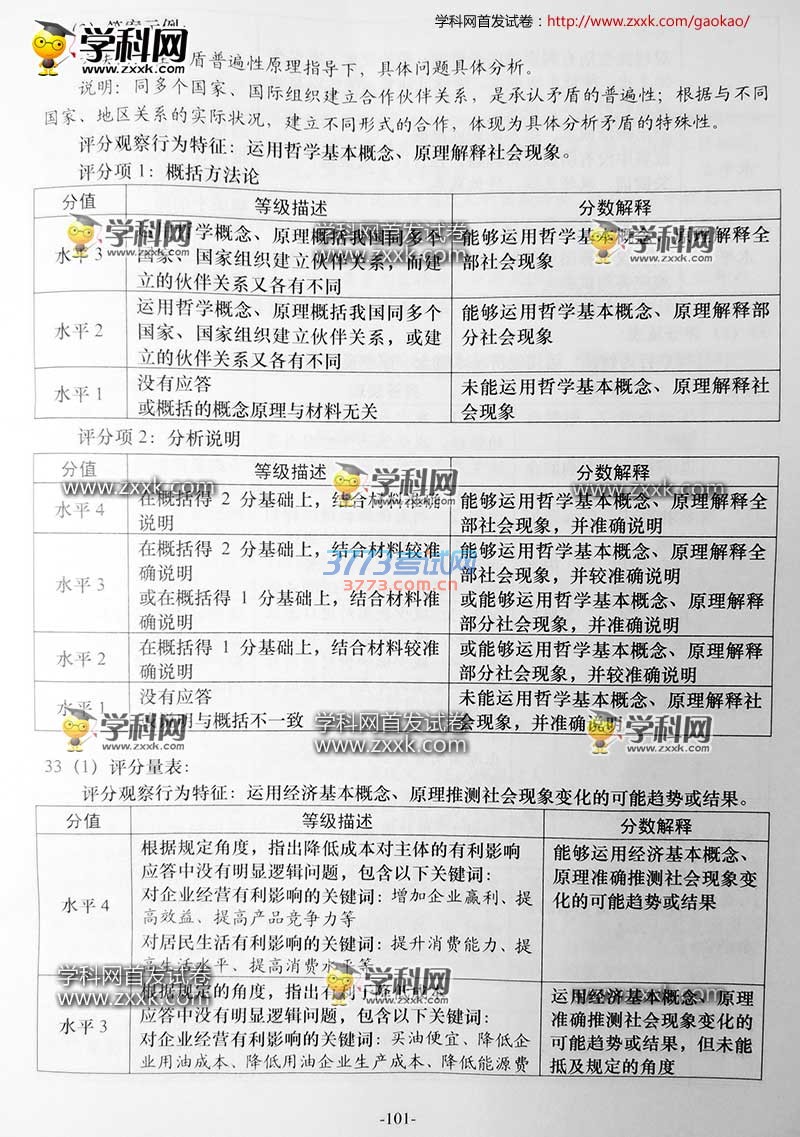 学科网首发试卷: http://www.zxxk.com/gaokao/
(2) 答案示例:
学科网
www.zxxk.com
盾普遍性原理指导下，具体问题具体分析。
说明：同多个国家、国际组织建立合作伙伴关系，是承认矛盾的普遍性；根据与不同
国家、地区关系的实际状况，建立不同形式的合作，体现为具体分析矛盾的特殊性。
评分观察行为特征：运用哲学基本概念、原理解释社会现象。
评分项1：概括方法论
分值 等级描述 分数解释
学科网
www.zxxk.com
学科网
www.zxxk.com
学科网
www.zxxk.com
水平3
用哲学概念、原理概括我国同多个
国家、国家组织建立伙伴关系，而建
立的伙伴关系又各有不同
能够运用哲学基本概念、原理解释全
部社会现象
水平2
运用哲学概念、原理概括我国同多个
国家、国家组织建立伙伴关系，或建
立的伙伴关系又各有不同
能够运用哲学基本概念、原理解释部
分社会现象
水平1
没有应答
或概括的概念原理与材料无关
未能运用哲学基本概念、原理解释社
会现象
评分项2：分析说明
分值 等级描述 分数解释
学科网首发试卷
www.zxxk.com
学科网
www.zxxk.com
学科网首发试卷
www.zxxk.com
水平4
在概括得 2 分基础上，结合材料准确
说明
能够运用哲学基本概念、原理解释全
部社会现象，并准确说明
水平3
在概括得 2 分基础上，结合材料较准
确说明
或在概括得 1 分基础上，结合材料准
确说明
能够运用哲学基本概念、原理解释全
部社会现象，并较准确说明
或能够运用哲学基本概念、原理解释
部分社会现象，并准确说明
3773考试网
3773.com.cn
水平2
在概括得 1 分基础上，结合材料较准
确说明
或能够运用哲学基本概念、原理解释
部分社会现象，并较准确说明
水平1
没有应答
明与概括不一致
未能运用哲学基本概念、原理解释社
会现象，并准确说明
学科网
www.zxxk.com
学科网首发试卷
www.zxxk.com
学科网
www.zxxk.com
33（1）评分量表：
评分观察行为特征：运用经济基本概念、原理推测社会现象变化的可能趋势或结果。
分值 等级描述 分数解释
水平4
根据规定角度，指出降低成本对主体的有利影响
应答中没有明显逻辑问题，包含以下关键词：
对企业经营有利影响的关键词：增加企业赢利、提
高效益、提高产品竞争力等
对居民生活有利影响的关键词：提升消费能力、提
高生活水平、提高消费水平等
能够运用经济基本概念、
原理准确推测社会现象变
化的可能趋势或结果
学科网首发试卷
www.zxxk.com
学科网
www.zxxk.com
学科网首发试卷
www.zxxk.com
水平3
根据规定的角度，指出有利于降低成本
应答中没有明显逻辑问题，包含以下关键词：
对企业经营有利影响的关键词：买油便宜、降低企
业用油成本、降低用油企业生产成本、降低能源费
运用经济基本概念、原理
准确推测社会现象变化的
可能趋势或结果，但未能
抵及规定的角度
-101-